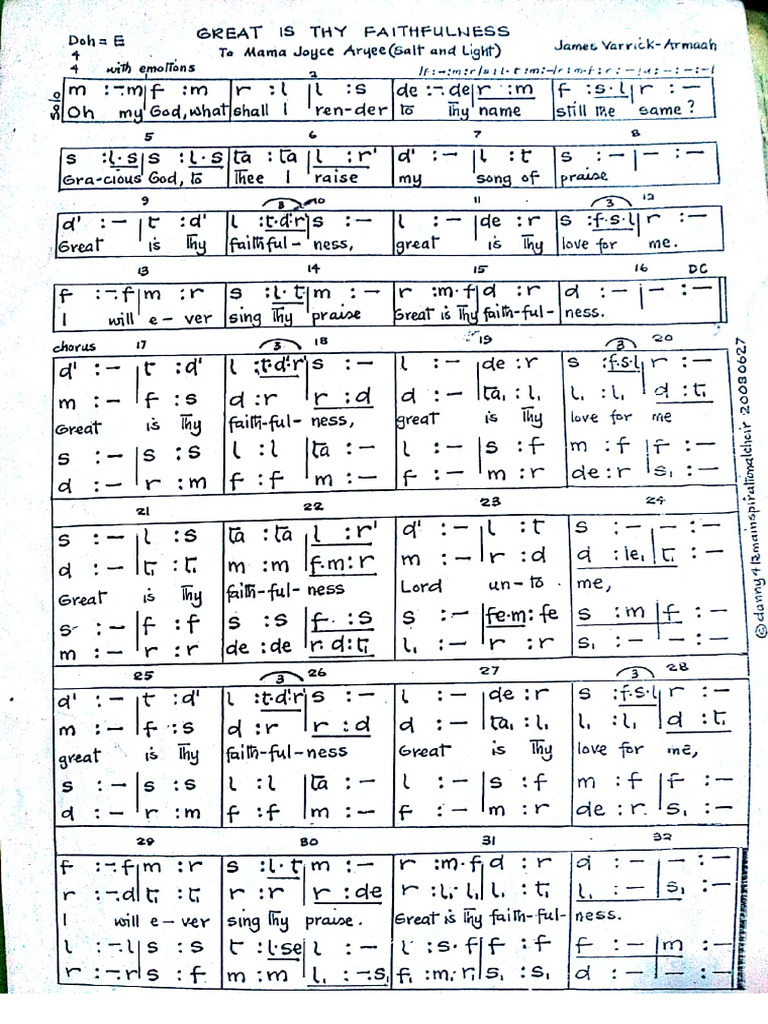 GREAT IS THY FAITHFULNESS
Doh = E
To Mama Joyce Aryee (Salt and Light)
James Varrick-Armaah
4
4
with emotions
2
Solo
m :-.m|f :m | r :l |l :s | de :-.de|r :m | f :s.l|r :-
Oh my God, what shall I ren-der to Thy name still the same?
5 6 7 8
s :l.s|s :l.s | ta :ta |l :r' | d' :- |l :t | s :- |- :-
Gra-cious God, to Thee I raise my song of praise
9 3 10 11 3 12
d' :- |t :d' | l :t.d'.r'|s :- | l :- |de :r | s :f.s.l|r :-
Great is Thy faithful-ness, great is Thy love for me.
13 14 15 16 DC
f :-.f|m :r | s :l.t|m :- | r :m.f|d :r | d :- |- :-
I will e-ver sing Thy praise Great is Thy faith-ful-ness.
chorus 17 3 18 19 3 20
d' :- |t :d' | l :t.d'.r'|s :- | l :- |de :r | s :f.s.l|r :-
m :- |f :s | d :r |r :d | d :- |ta, :l, | l, :l, |d :t,
Great is Thy faith-ful-ness, great is Thy love for me
s :- |s :s | l :l |ta :- | l :- |s :f | m :f |f :-
d :- |r :m | f :f |m :- | f :- |m :r | de :r |s, :-
21 22 23 24
s :- |l :s | ta :ta |l :r' | d' :- |l :t | s :- |- :-
d :- |t, :t, | m :m |f.m:r | m :- |r :d | d :le,|t, :-
Great is Thy faith-ful-ness Lord un-to me,
s :- |f :f | s :s |f. :s | s :- |fe.m:fe | s :m |f :-
m :- |r :r | de :de |r.d:t, | l, :- |r :r | s, :- |- :-
25 3 26 27 3 28
d' :- |t :d' | l :t.d'.r'|s :- | l :- |de :r | s :f.s.l|r :-
m :- |f :s | d :r |r :d | d :- |ta, :l, | l, :l, |d :t,
great is Thy faith-ful-ness Great is Thy love for me,
s :- |s :s | l :l |ta :- | l :- |s :f | m :f |f :-
d :- |r :m | f :f |m :- | f :- |m :r | de :r. |s, :-
29 30 31 32
f :-.f|m :r | s :l.t|m :- | r :m.f|d :r | d :- |- :-
r :-.d|t, :t, | r :r |r :de | r :l,.l,|l, :t, | l, :- |s, :-
I will e-ver sing Thy praise. Great is Thy faith-ful-ness.
l :-.l|s :s | t :l.se|l :- | l :s.f|f :f | f :- |m :-
r :-.r|s :f | m :m |l, :-.s, | f, :m,.r,|s, :s, | d :- |- :-
©danny4lzmainspirationalchoir 20080627